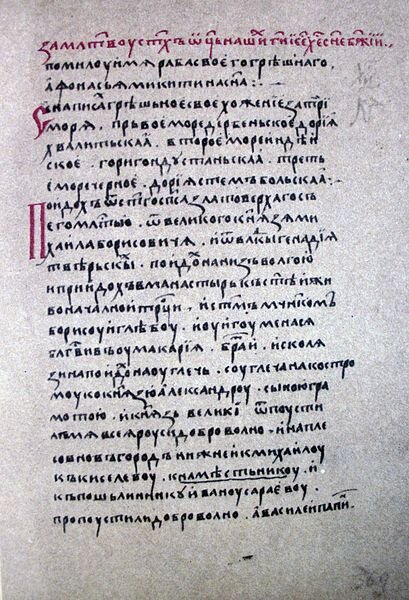 за мл҃твоу ст҃хъ ѡц҃ь наши ги іс хе сне бжїи.
помилоуимѧ раба своего грѣшнаго
афонасьѧ микитина сн҃а :
написа грѣшьное свое хоженіе за три
морѧ. прьвое море дербеньскоe дорїа
хвалитьскаа. второе море индѣи
ское. горигондустаньскаа. треть
е море черное. дорїа стемъбольскаа :
Поидохъ ѿ ст҃го спа зла
его мл҃тью. ѿ великого кнѧзѧ ми
хаила борисовичѧ. и ѿ влкы генадїа
твѣрьскы. поидо на низъ волгою
и приидохъ в манастырь къ стѣи жи
воначалнои трц҃и. и стмъ мчнкомъ
борисоу и глѣбоу. и оу игоу мена сѧ
блгвивъ оу макарїа. браи. и с колѧ
зина поидо на оуглечь. со углеча на костро
моу ко кнзю александроу. с ыною гра
мотою. и кнзь великї ѿпоусти
лъ мѧ всеѧ роуси доброволно. и на пле
со в новъгородъ нижнеи к михаилоу
къ киселевоу. к намѣстьникоу. и
къ пошьлинникоу иваноу сараевоу.
пропоустили доброволно. а василеи папи.
369